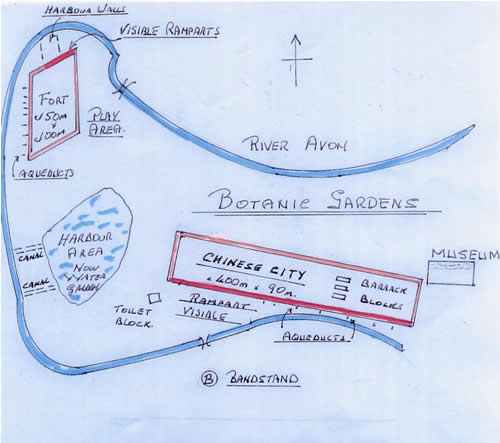 HARBOUR WALLS
VISIBLE RAMPARTS
FORT
c150m
x
100m
PLAY
AREA.
AQUEDUCTS
RIVER AVON
BOTANIC GARDENS
HARBOUR
AREA
NOW
WATER
GARDEN
CANAL
CANAL
TOILET
BLOCK.
CHINESE CITY
c 400m x 90m.
BARRACK
BLOCKS
MUSEUM
RAMPART
VISIBLE
AQUEDUCTS
B BANDSTAND